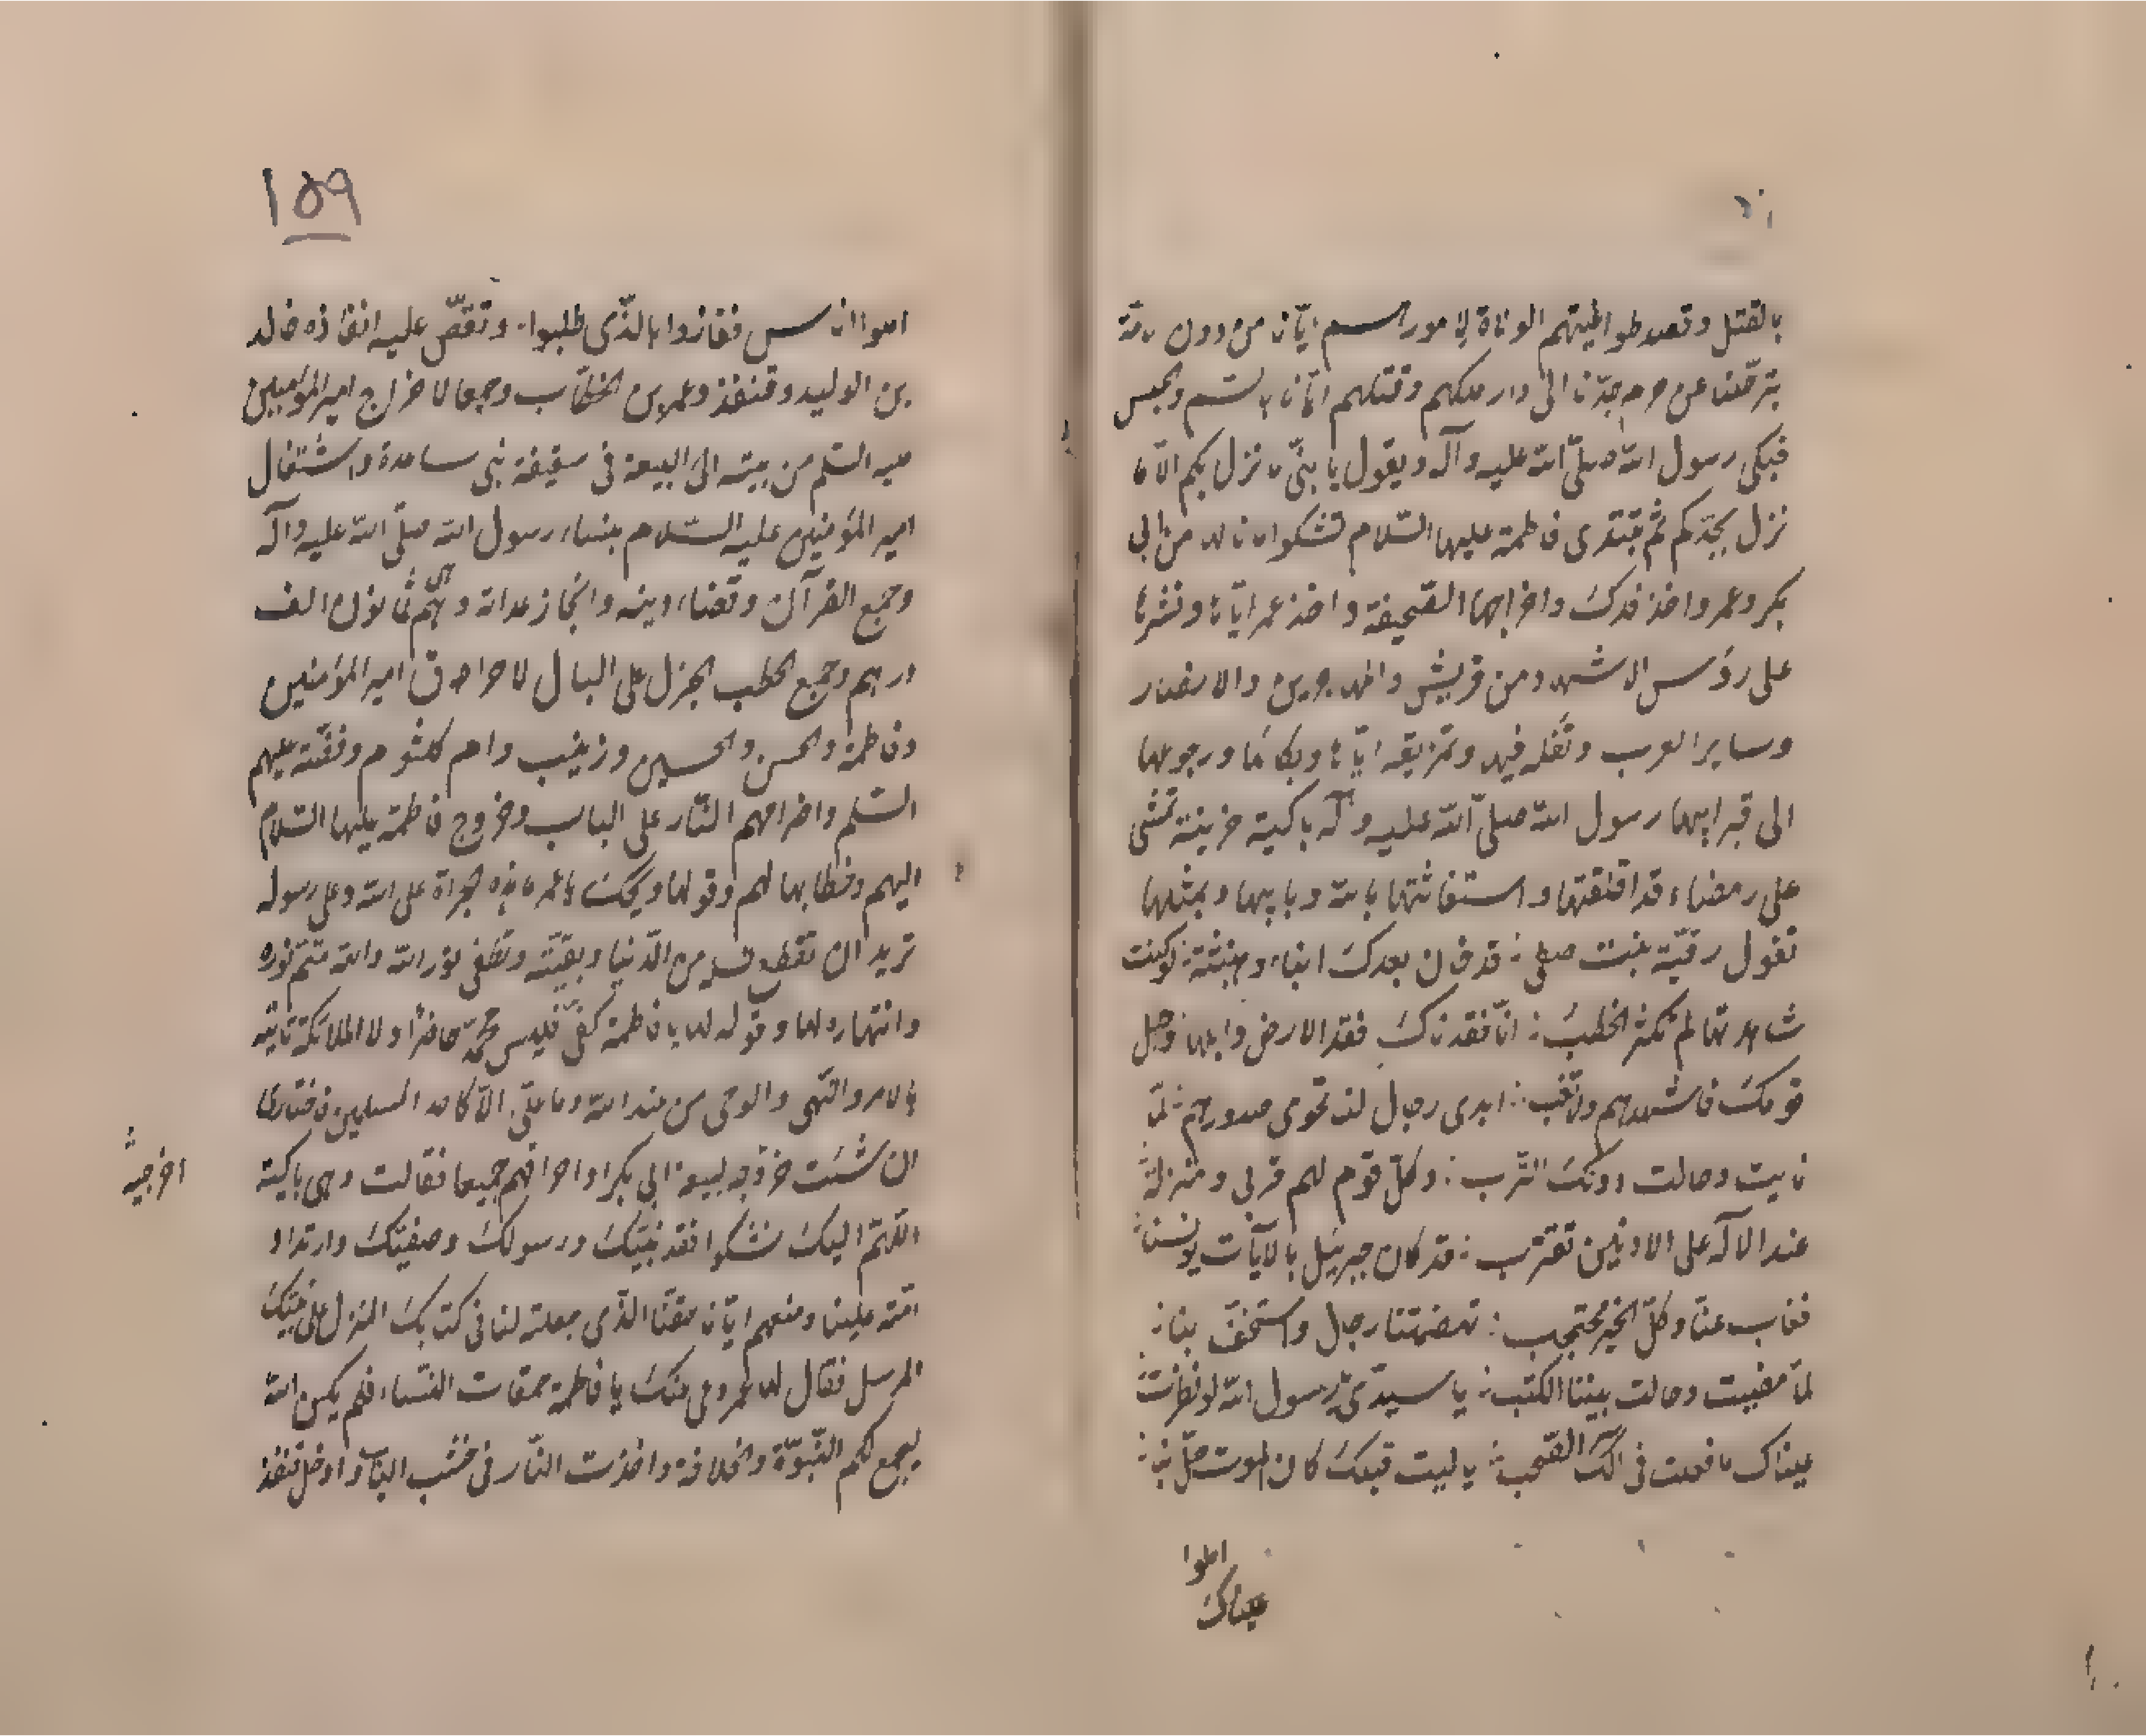 بالقتل وقصدهم الولاة لامورهم ايّانا من دون الامّة
بترحّلنا عن حرم جدّنا الى دار ملكهم وقتلهم ايّانا بالسّم والحبس
فبكى رسول الله صلّى الله عليه وآله ويقول يا بنيّ ما نزل بكم الاّ ما
نزل بجدّكم ثم تبتدى فاطمة عليها السّلام تشكوا ما نالها من ابى
بكر وعمر واخذ فدك واخراجها الصّحيفة واخذ عمر ايّاها ونشرها
على رؤس الاشهاد من قريش والمهاجرين والانصار
وساير العرب وتفله فيها وتمزيقه ايّاها وبكائها ورجوعها
الى قبر ابيها رسول الله صلّى الله عليه وآله باكية حزينة تمشى
على رمضاء قد اقلقتها واستغاثتها بالله وبابيها وتمثلها
بقول رقيّة بنت صيفى قد كان بعدك انباء وهنبثة لو كنت
شاهدها لم تكثر الخطب انّا فقدناك فقد الارض وابلها واختل
قومك فاشهدهم ولا تغب ابدى رجال لنا نجوى صدورهم لمّا
نايت وحالت دونك التّرب وكلّ قوم لهم قربى ومنزلة
عند الاله على الادنين تقترب قد كان جبرئيل بالآيات يونسنا
فغاب عنّا وكلّ الخير محتجب تهضمتنا رجال واستخفّ بنا
لمّا مضيت وحالت بيننا الكتب يا سيّدى يا رسول الله لو نظرت
عيناك ما فعلت فى آلك الصّحب يا ليت قبلك كان الموت حلّ بنا
املوا
عيناك
١٥٩
املوا اناس ففازوا بالّذى طلبوا وتقصّ عليه انفاذه خالد
بن الوليد وقنفذ وعمر بن الخطّاب وجمعا لاخراج امير المؤمنين
عليه السّلم من بيته الى البيعة فى سقيفة بنى ساعدة واشتغال
امير المؤمنين عليه السّلام بنساء رسول الله صلّى الله عليه وآله
وجمع القرآن وقضاء دينه وانجاز عداته وهى ثمانون الف
درهم وجمع الحطب الجزل على الباب لاحراق امير المؤمنين
وفاطمة والحسن والحسين وزينب وام كلثوم وفضّة عليهم
السّلم واضرامهم النّار على الباب وخروج فاطمة عليها السّلام
اليهم وخطابها لهم وقولها ويحك يا عمر ما هذه الجراة على الله وعلى رسوله
تريد ان تقطع نسله من الدّنيا وبقيّته وتطفى نور الله والله متم نوره
وانتهاره لها وقوله لها يا فاطمة كفّى فليس محمّد حاضرا ولا الملائكة تاتيه
بالامر والنّهى والوحى من عند الله وما علىّ الاّ كاحد المسلمين فاختارى
ان شئت خروجه لبيعة ابى بكر او احراقهم جميعا فقالت وهى باكية
اللّهمّ اليك نشكوا فقد نبيّك ورسولك وصفيّك وارتداد
امّته علينا ومنعهم ايّانا حقّنا الّذى جعلته لنا فى كتابك المنزل على نبيّك
المرسل فقال لها عمر دعى عنك يا فاطمة حمقات النّساء فلم يكن الله
ليجمع لكم النّبوّة والخلافة واخذت النّار فى خشب الباب وادخل قنفذ